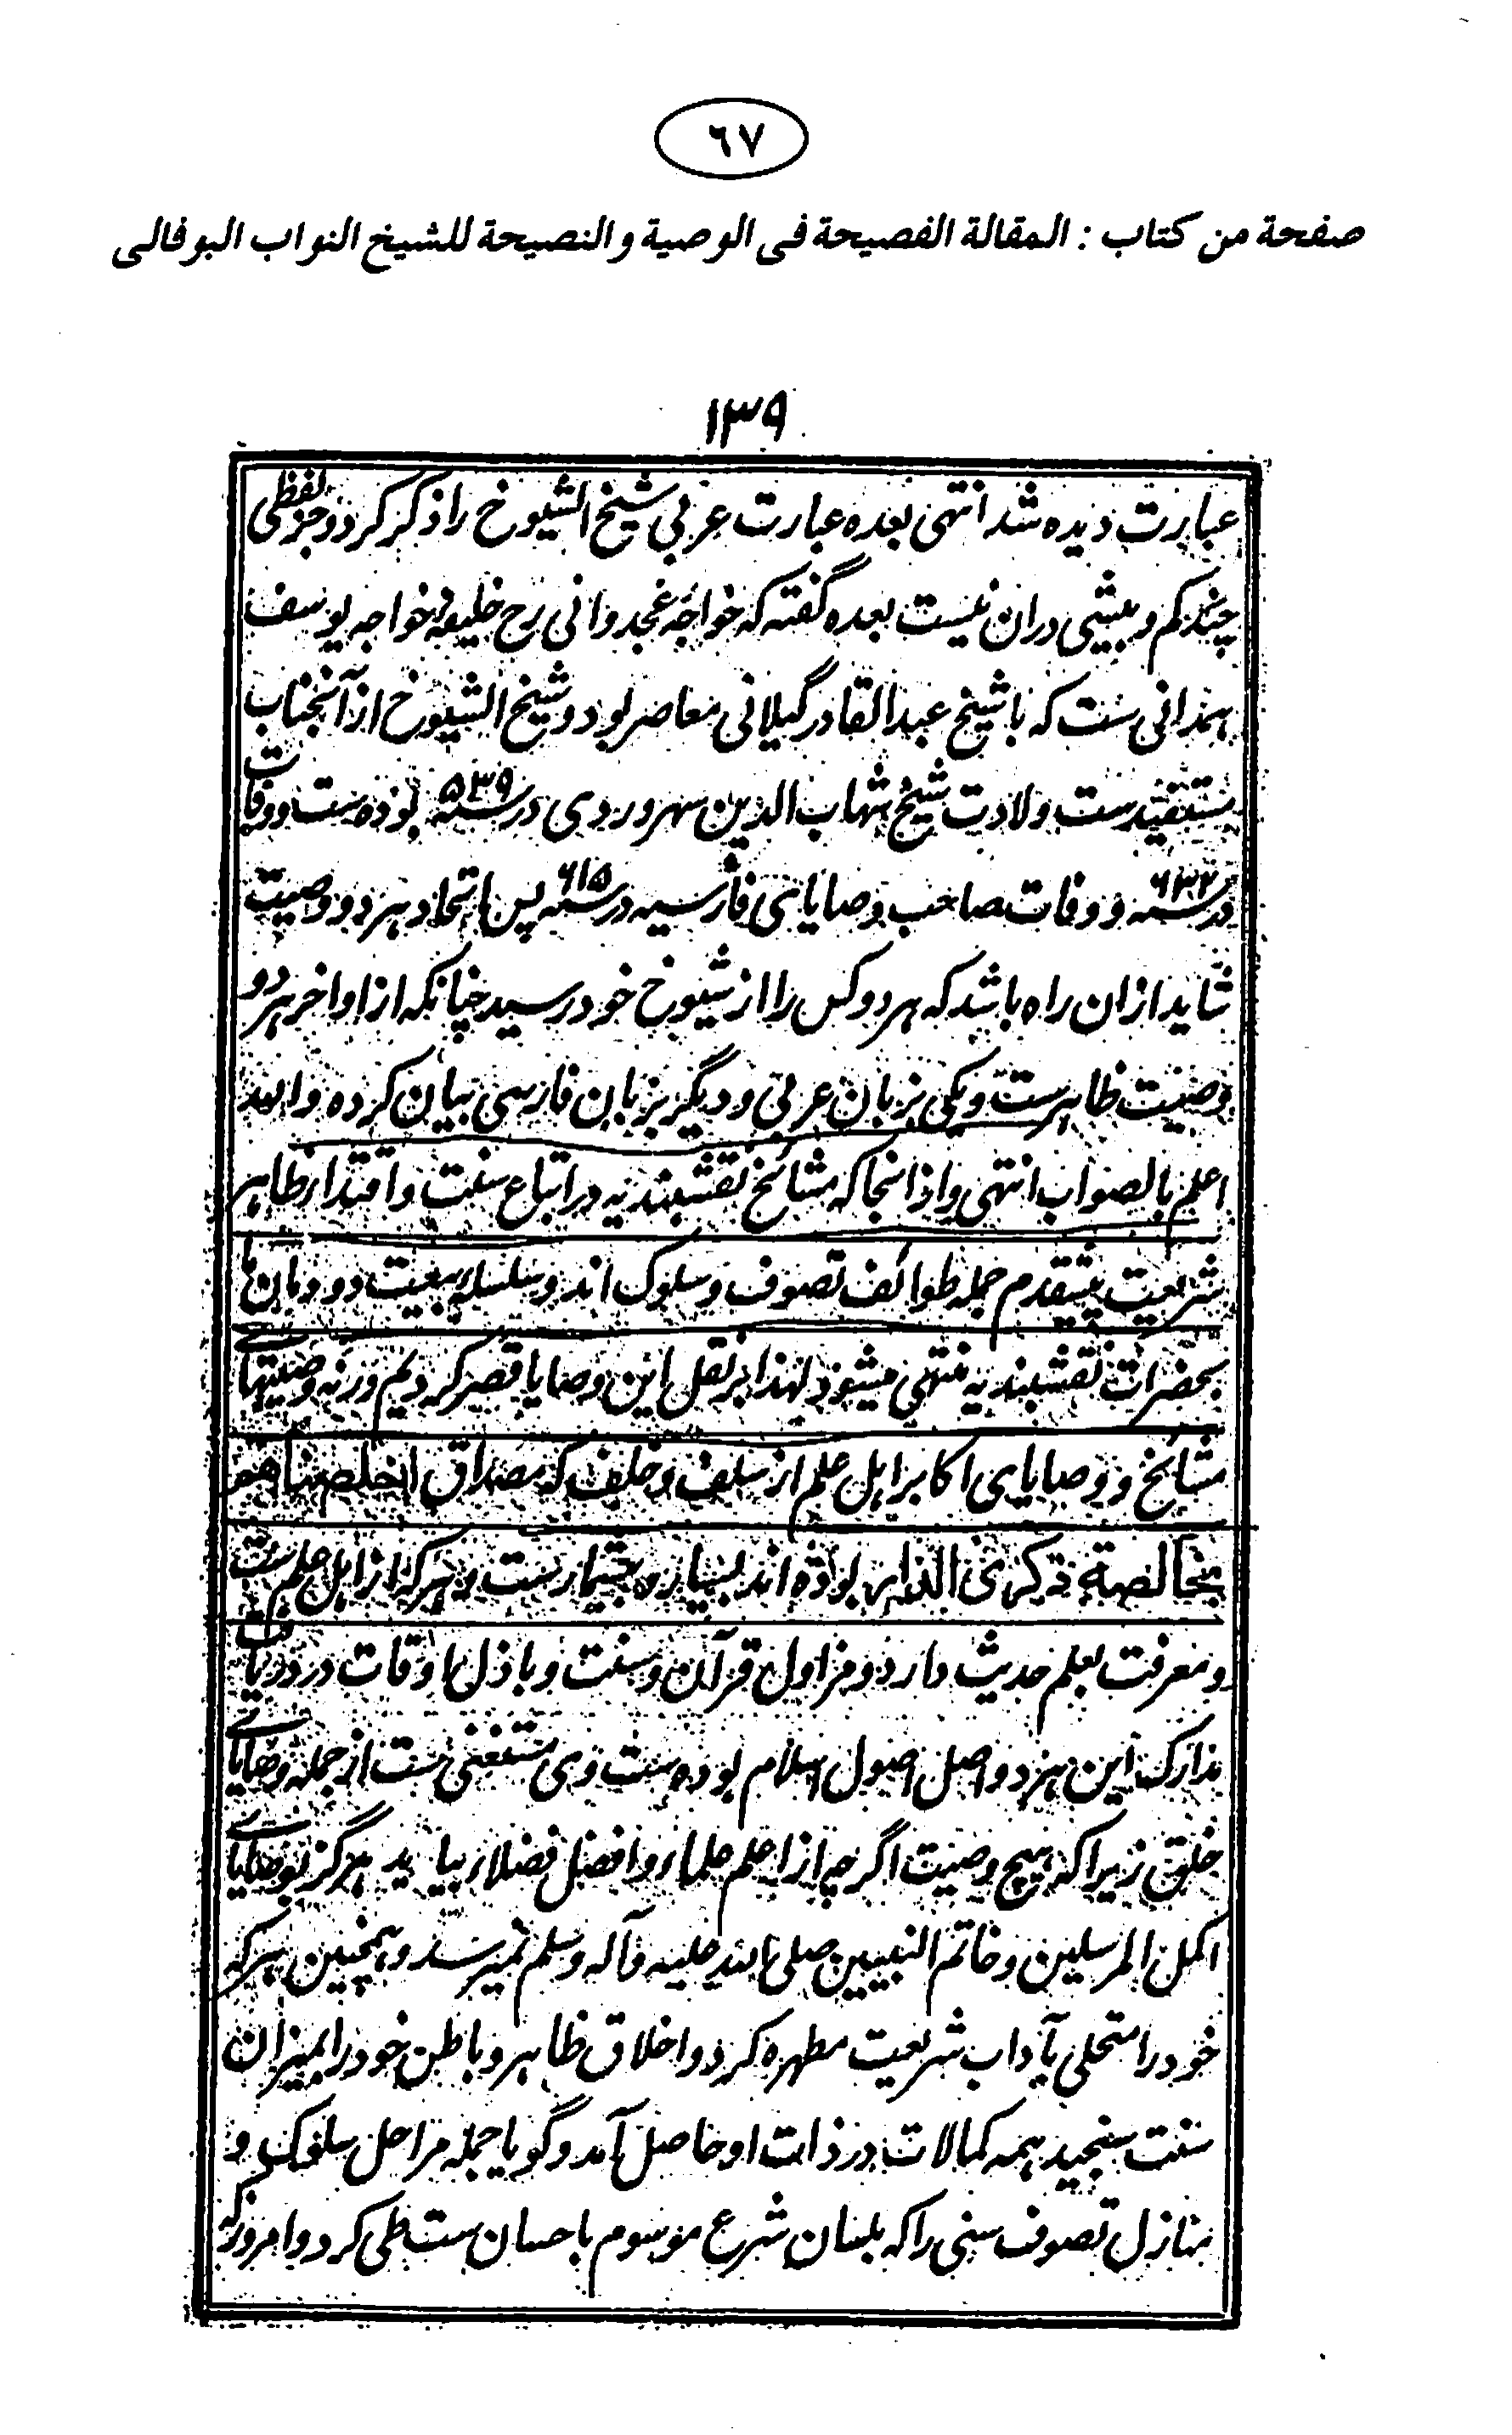 ٦٧
صفحة من كتاب : المقالة الفصيحة فى الوصية والنصيحة للشيخ النواب البوفالى
١٣٩
عبارت دیده شد انتهی بعده عبارت عربی شیخ الشیوخ را ذکر کرد و جز لفظی
چند کم و بیشی دران نیست بعده گفته که خواجۀ غجدوانی رح خلیفۀ خواجه یوسف
همدانی ست که با شیخ عبدالقادر گیلانی معاصر بود و شیخ الشیوخ از آنجناب
مستفیدست ولادت شیخ شهاب الدین سهروردی در سنه ۵۳۹ بوده ست و وفات
در سنه ۶۳۲ و وفات صاحب وصایای فارسیه در سنه ۶۱۵ پس اتحاد هر دو وصیت
شاید ازان راه باشد که هر دو کس را از شیوخ خود رسید چنانکه از اواخر هر دو
وصیت ظاهرست و یکی بزبان عربی و دیگر بزبان فارسی بیان کرده والله
اعلم بالصواب انتهی و ازانجا که مشائخ نقشبندیه در اتباع سنت و اقتدار ظاهر
شریعت پیشقدم جمله طوائف تصوف و سلوک اند و سلسلۀ بیعت دودمان ما
بحضرات نقشبندیه منتهی میشود لهذا بر نقل این وصایا قصر کردیم ورنه وصیتهای
مشائخ و وصایای اکابر اهل علم از سلف و خلف که مصداق اخلصناهم
بخالصة ذکری الدار بوده اند بسیار و بیشمارست و هر که از اهل علم ست
و معرفت بعلم حدیث دارد و مزاول قرآن و سنت و باذل اوقات در دریافت
مدارک این هر دو اصل اصول اسلام بوده ست وی مستغنی ست از جمله وصایای
خلق زیرا که هیچ وصیت اگرچه از اعلم علماء و افضل فضلاء بیاید هرگز بوصایای
اکمل المرسلین و خاتم النبیین صلی الله علیه و آله وسلم نمیرسد و همچنین هر که
خود را متحلی بآداب شریعت مطهره کرد و اخلاق ظاهر و باطن خود را بمیزان
سنت سنجید همه کمالات در ذات او حاصل آمد و گویا جمله مراحل سلوک و
منازل تصوف سنی را که بلسان شرع موسوم باحسان ست طی کرد و امروز که